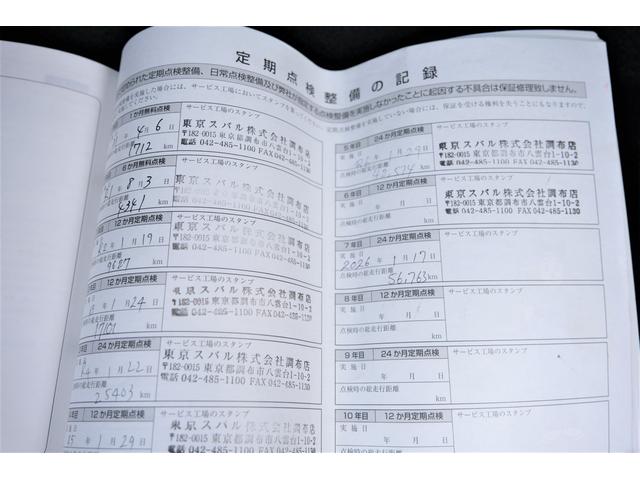 定期点検整備の記録
められた定期点検整備、日常点検整備及び弊社が指定する点検整備を実施しなかったことに起因する不具合は保証修理致しません。
1か月無料点検
サービス工場のスタンプ
4月6日
712 km
東京スバル株式会社調布店
〒182-0015 東京都調布市八雲台1-10-2
電話 042-485-1100 FAX 042-485-1130
6か月無料点検
サービス工場のスタンプ
8月3日
4341 km
東京スバル株式会社調布店
〒182-0015 東京都調布市八雲台1-10-2
電話 042-485-1100 FAX 042-485-1130
12か月定期点検
サービス工場のスタンプ
1月19日
9627 km
東京スバル株式会社調布店
〒182-0015 東京都調布市八雲台1-10-2
電話 042-485-1100 FAX 042-485-1130
12か月定期点検
サービス工場のスタンプ
年1月24日
17101 km
東京スバル株式会社調布店
〒182-0015 東京都調布市八雲台1-10-2
電話 042-485-1100 FAX 042-485-1130
24か月定期点検
サービス工場のスタンプ
年1月22日
25403 km
東京スバル株式会社調布店
〒182-0015 東京都調布市八雲台1-10-2
電話 042-485-1100 FAX 042-485-1130
12か月定期点検
サービス工場のスタンプ
15年1月29日
東京スバル株式会社調布店
〒182-0015 東京都調布市八雲台1-10-2
電話 042-485-1100 FAX 042-485-1130
5年目 24か月定期点検
サービス工場のスタンプ
実施日
点検時の総走行距離
km
東京スバル株式会社調布店
〒182-0015 東京都調布市八雲台1-10-2
電話 042-485-1100 FAX 042-485-1130
6年目 12か月定期点検
サービス工場のスタンプ
実施日 年 月 日
点検時の総走行距離
km
東京スバル株式会社調布店
〒182-0015 東京都調布市八雲台1-10-2
電話 042-485-1100 FAX 042-485-1130
7年目 24か月定期点検
サービス工場のスタンプ
実施日 2026年1月17日
点検時の総走行距離
56,763 km
8年目 12か月定期点検
サービス工場のスタンプ
実施日 年 月 日
点検時の総走行距離
km
9年目 24か月定期点検
サービス工場のスタンプ
実施日 年 月 日
点検時の総走行距離
km
10年目 12か月定期点検
サービス工場のスタンプ
実施日 年 月 日